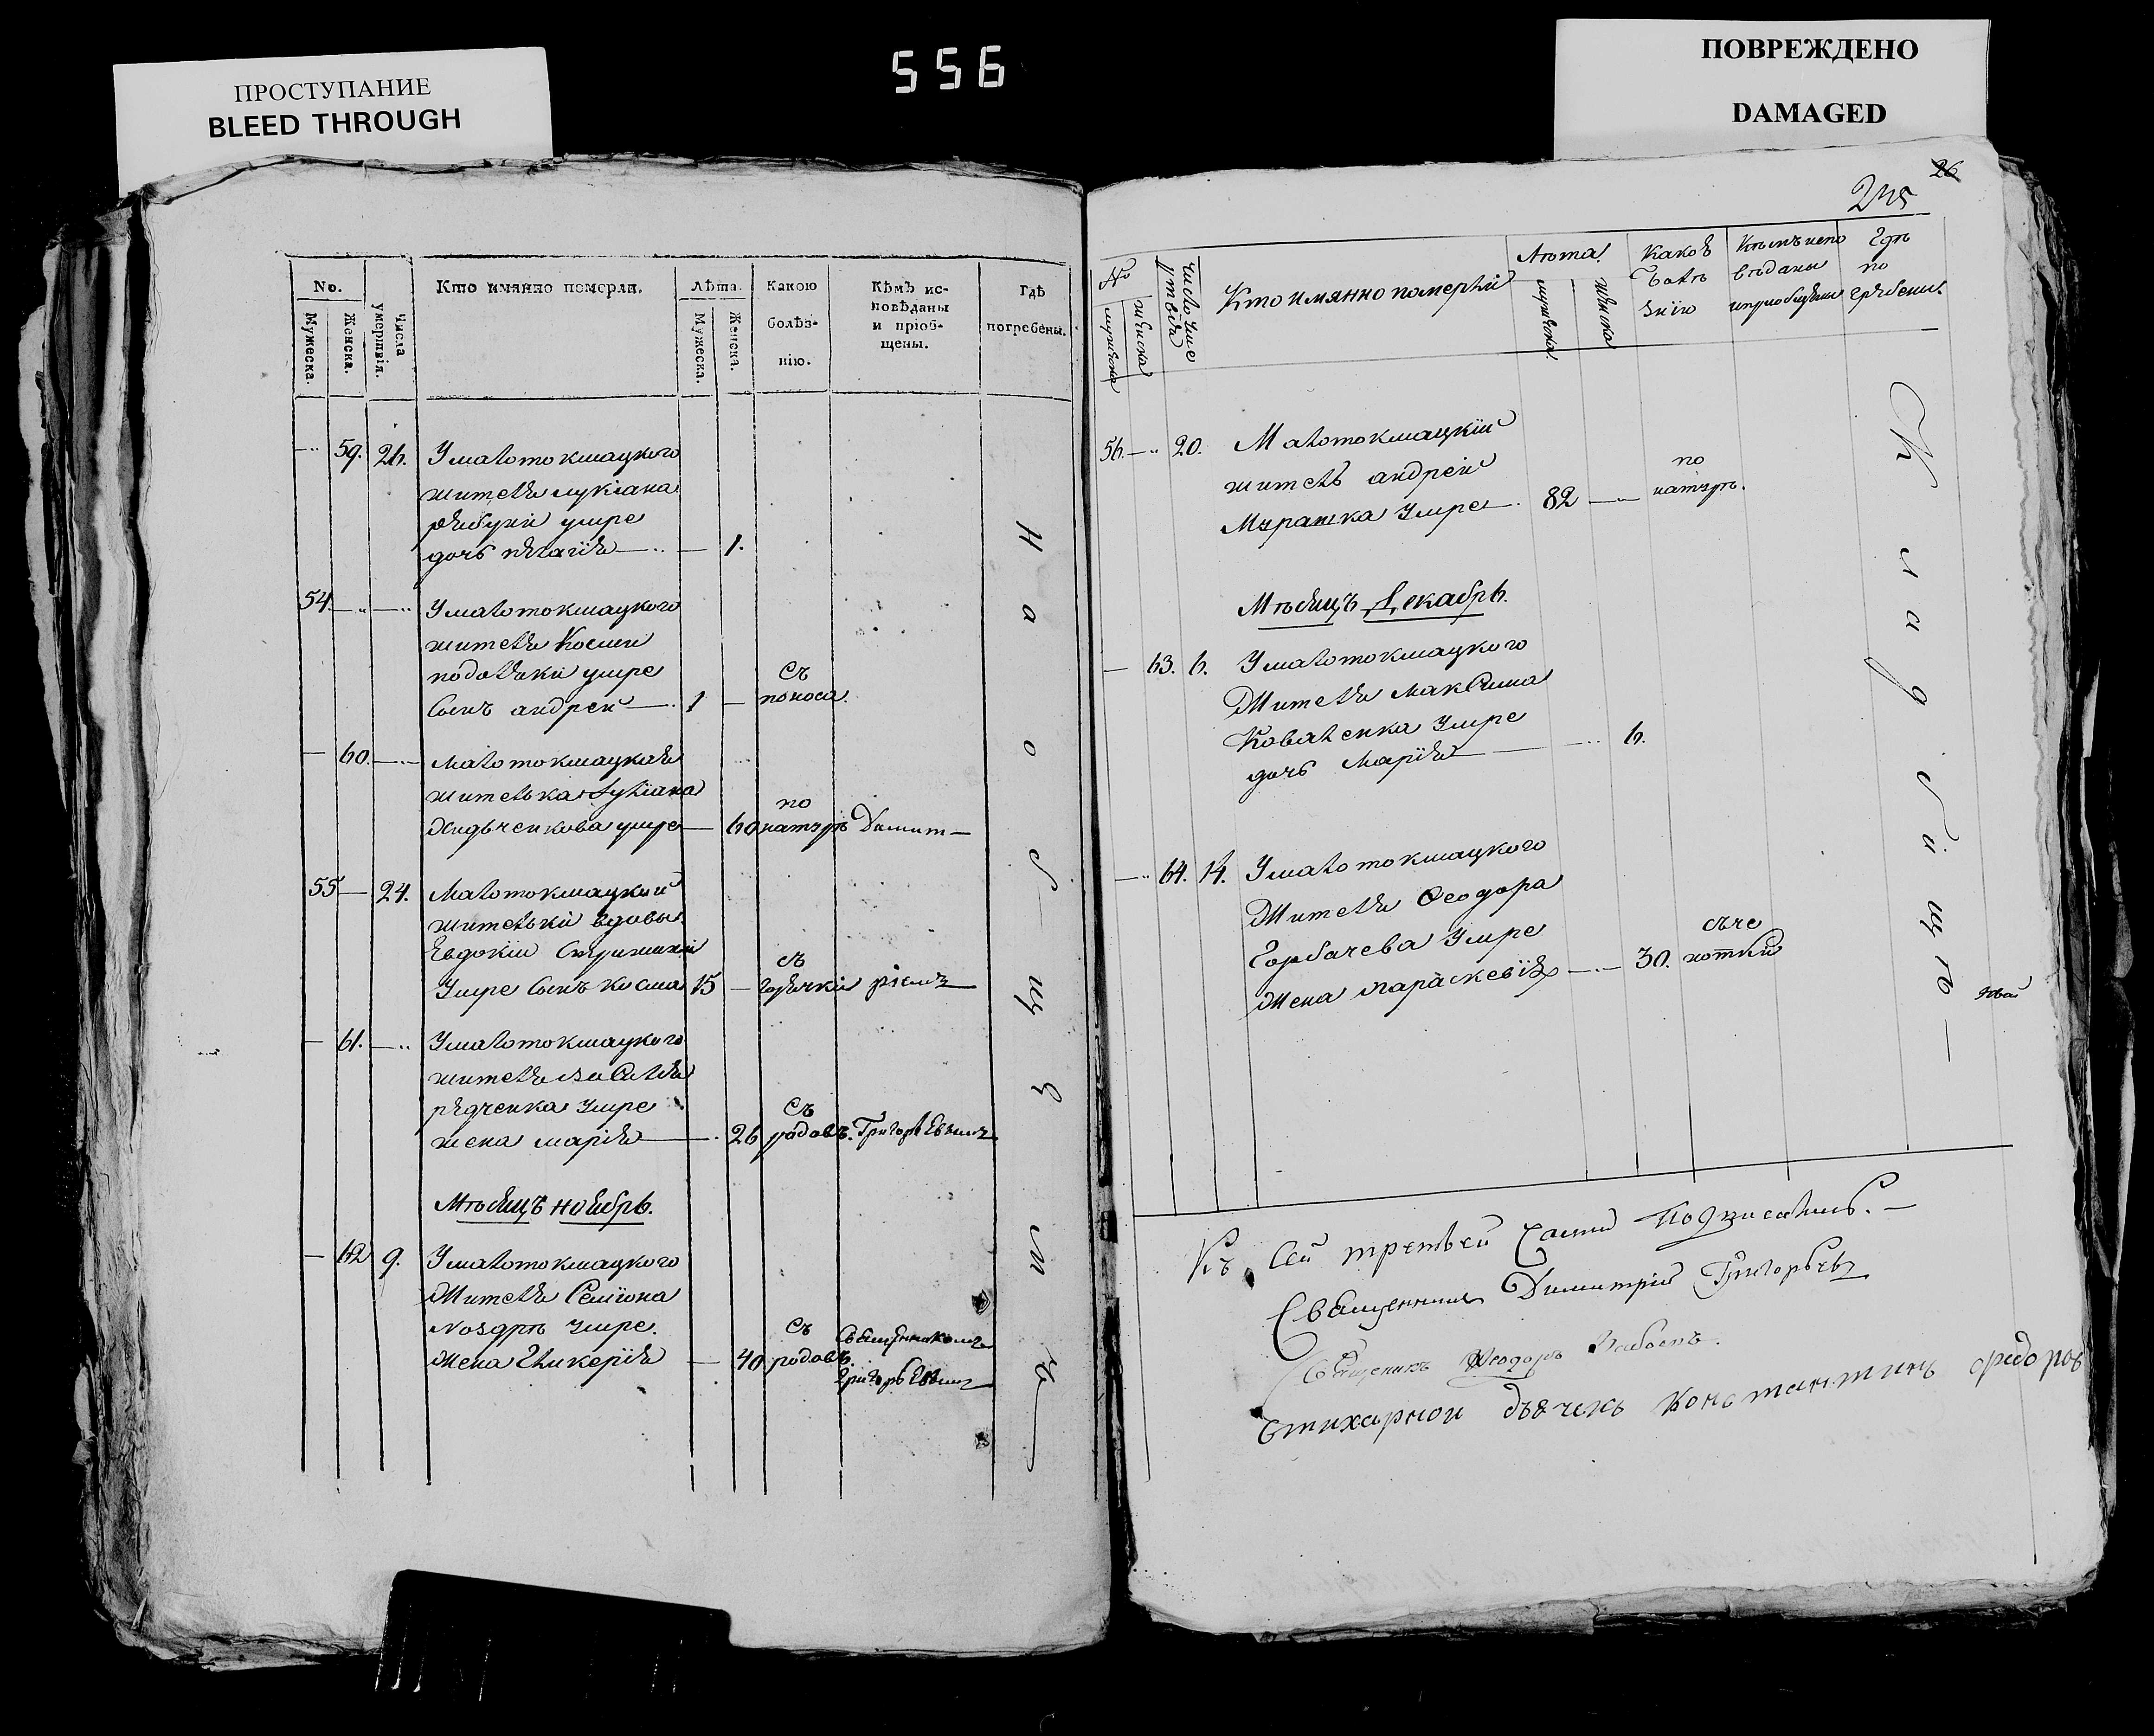 ПРОСТУПАНИЕ
BLEED THROUGH
556
ПОВРЕЖДЕНО
DAMAGED
No.
Мужеска.
Женска.
Числа умертвія.
Кто имянно померли.
Лѣта.
Мужеска.
Женска.
Какою болѣз-
нію.
Кѣмъ ис-
повѣданы
и пріоб-
щены.
Гдѣ
погребены.
59. 26. У малотокмацкого
жителя лукіана
умре
дочь пелагія 1.
54 У малотокмацкого
жителя Космы
умре
Сынъ андрей 1 Съ поноса.
60. малотокмацкая
жителька
умре 60 по натурѣ Димит-
55 24. Малотокмацкой
жительки вдовы
Евдокіи
Умре Сынъ косма 15 съ горячки ріемъ
61. У малотокмацкого
жителя василія
редченка умре
жена марія 26 Съ родовъ. ГригорьЕвымъ
Мѣсяцъ ноябрь.
62 9. У малотокмацкого
Жителя Семіона
Ноздрѣ умре.
Жена Гликерія 40 Съ родовъ. Священникомъ
ГригорьЕвымъ
На обще м
26
245
No
мужеска
женска
Число умертвія
Кто имянно померлій
Лѣта
мужеска
женска
Какою
болѣ
знію
Кѣмъ испо
вѣданы
и пріобщены
Гдѣ
по
гребены.
56. 20. Малотокмацкій
житель андрей
Мурашка Умре 82 по натурѣ.
Мѣсяцъ Декабрь.
63. 6. У малотокмацкого
Жителя Максима
Коваленка Умре
дочь Марія 6.
64. 14. У малотокмацкого
Жителя Ѳеодора
Горбачева Умре
Жена параскевія 30. съ чехотки
Кладбищѣ
Къ Сей третьей Части Подписались.
Священникъ Димитрій Григорьевъ
Священникъ Ѳеодоръ
Стихарной дьячекъ Константинъ Федоров